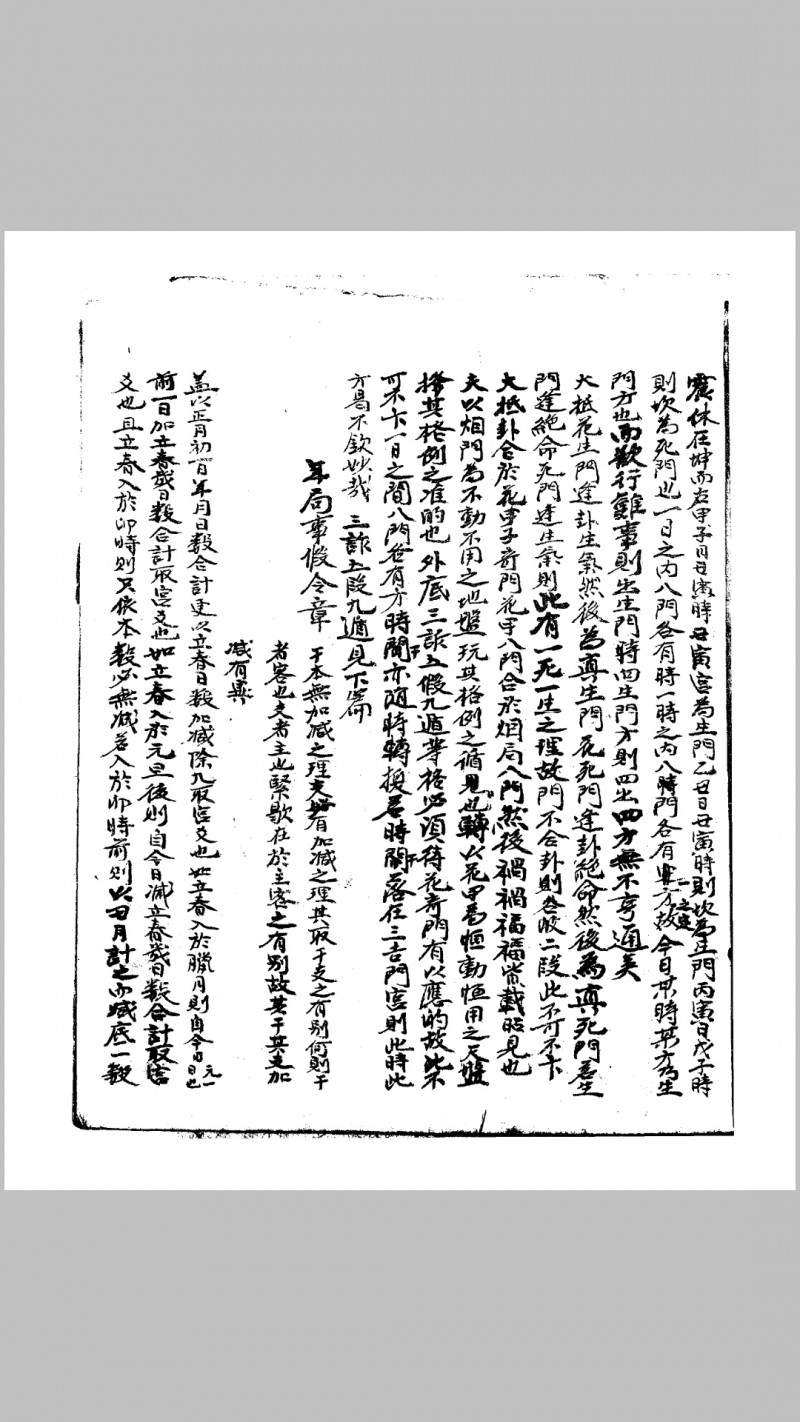 震休在坤而左甲子日丑寅時丑寅宮為生門乙丑日丑寅時則坎為生門丙寅日戊子時
則坎為死門也一日之內八門各有時一時之內八時門各有方故今日某時某方為生
門方也而欲行難事則出生門時向生門方則四出四方無不亨通矣
大抵花生門逢卦生氣然後為真生門花死門逢卦絕命然後為真死門若生
門逢絕命死門逢生氣則此有一死一生之理故門不合卦則各收二段此不可不卞
大抵卦合於花甲子奇門花甲八門合於烟局八門然後禍禍福福常載昭見也
夫以烟門為不動不用之地盤玩其格例之循見也轉以花甲為恒動恒用之天盤
擇其格例之准的也外底三詐五假九遁等格必須待花奇門有以應的故此不
可不卞一日之間八門各有方時間亦隨時轉換若時開落在三吉門宮則此時此
方曷不欽妙哉 三詐五段九遁見下篇
年局事假令章 干本無加減之理支始有加減之理其取干支之有別何則干
者客也支者主也緊歇在於主客之有別故其干其支加
減有異
盖以正月初一日年月日數合計更以立春日數加減除九取宮爻也如立春入於臘月則自今日元一日也
前一日加立春歲日數合計取宮爻也如立春入於元旦後則自今日減立春歲日數合計取宮
爻也且立春入於卯時則只依本數必無減若入於卯時前則以丑月計之而減底一數